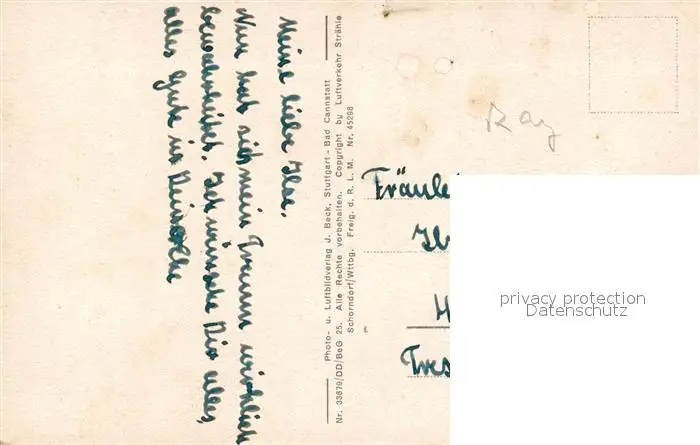 Meine liebe Ilse.
Nun hat sich mein Traum wirklich
bewahrheitet. Ich wünsche Dir alles,
alles Gute
Photo- u. Luftbildverlag J. Beck, Stuttgart - Bad Cannstatt
Nr. 33679/DD/BeG 25. Alle Rechte vorbehalten. Copyright by Luftverkehr Strähle
Schorndorf/Wttbg. Freig. d. R. L. M. Nr. 45298
Fräule
Ils
H
Tres
privacy protection
Datenschutz